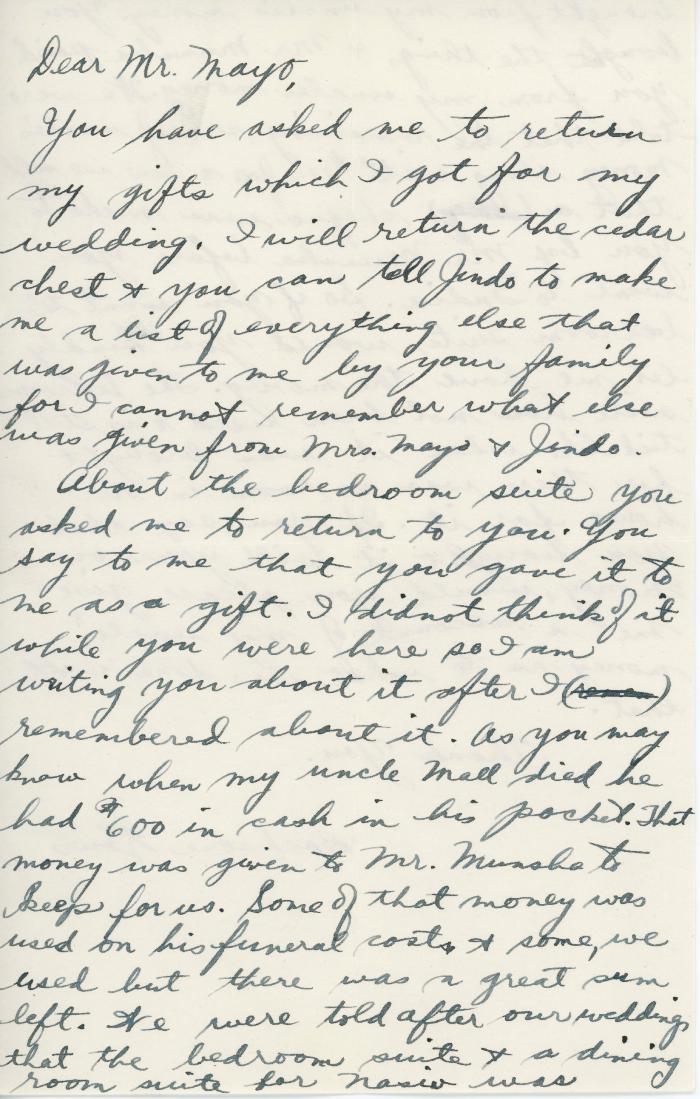 Dear Mr. Mayo,
You have asked me to return
my gifts which I got for my
wedding. I will return the cedar
chest & you can tell Jindo to make
me a list of everything else that
was given to me by your family
for I cannot remember what else
was given from Mrs. Mayo & Jindo.
About the bedroom suite you
asked me to return to you. You
say to me that you gave it to
me as a gift. I didnot think of it
while you were here so I am
writing you about it after I (remem)
remembered about it. As you may
know when my uncle Mall died he
had $600 in cash in his pocket. That
money was given to Mr. Munsha to
keep for us. Some of that money was
used on his funeral costs, & some, we
used but there was a great sum
left. We were told after our weddings
that the bedroom suite & a dining
room suite for Nasiv was